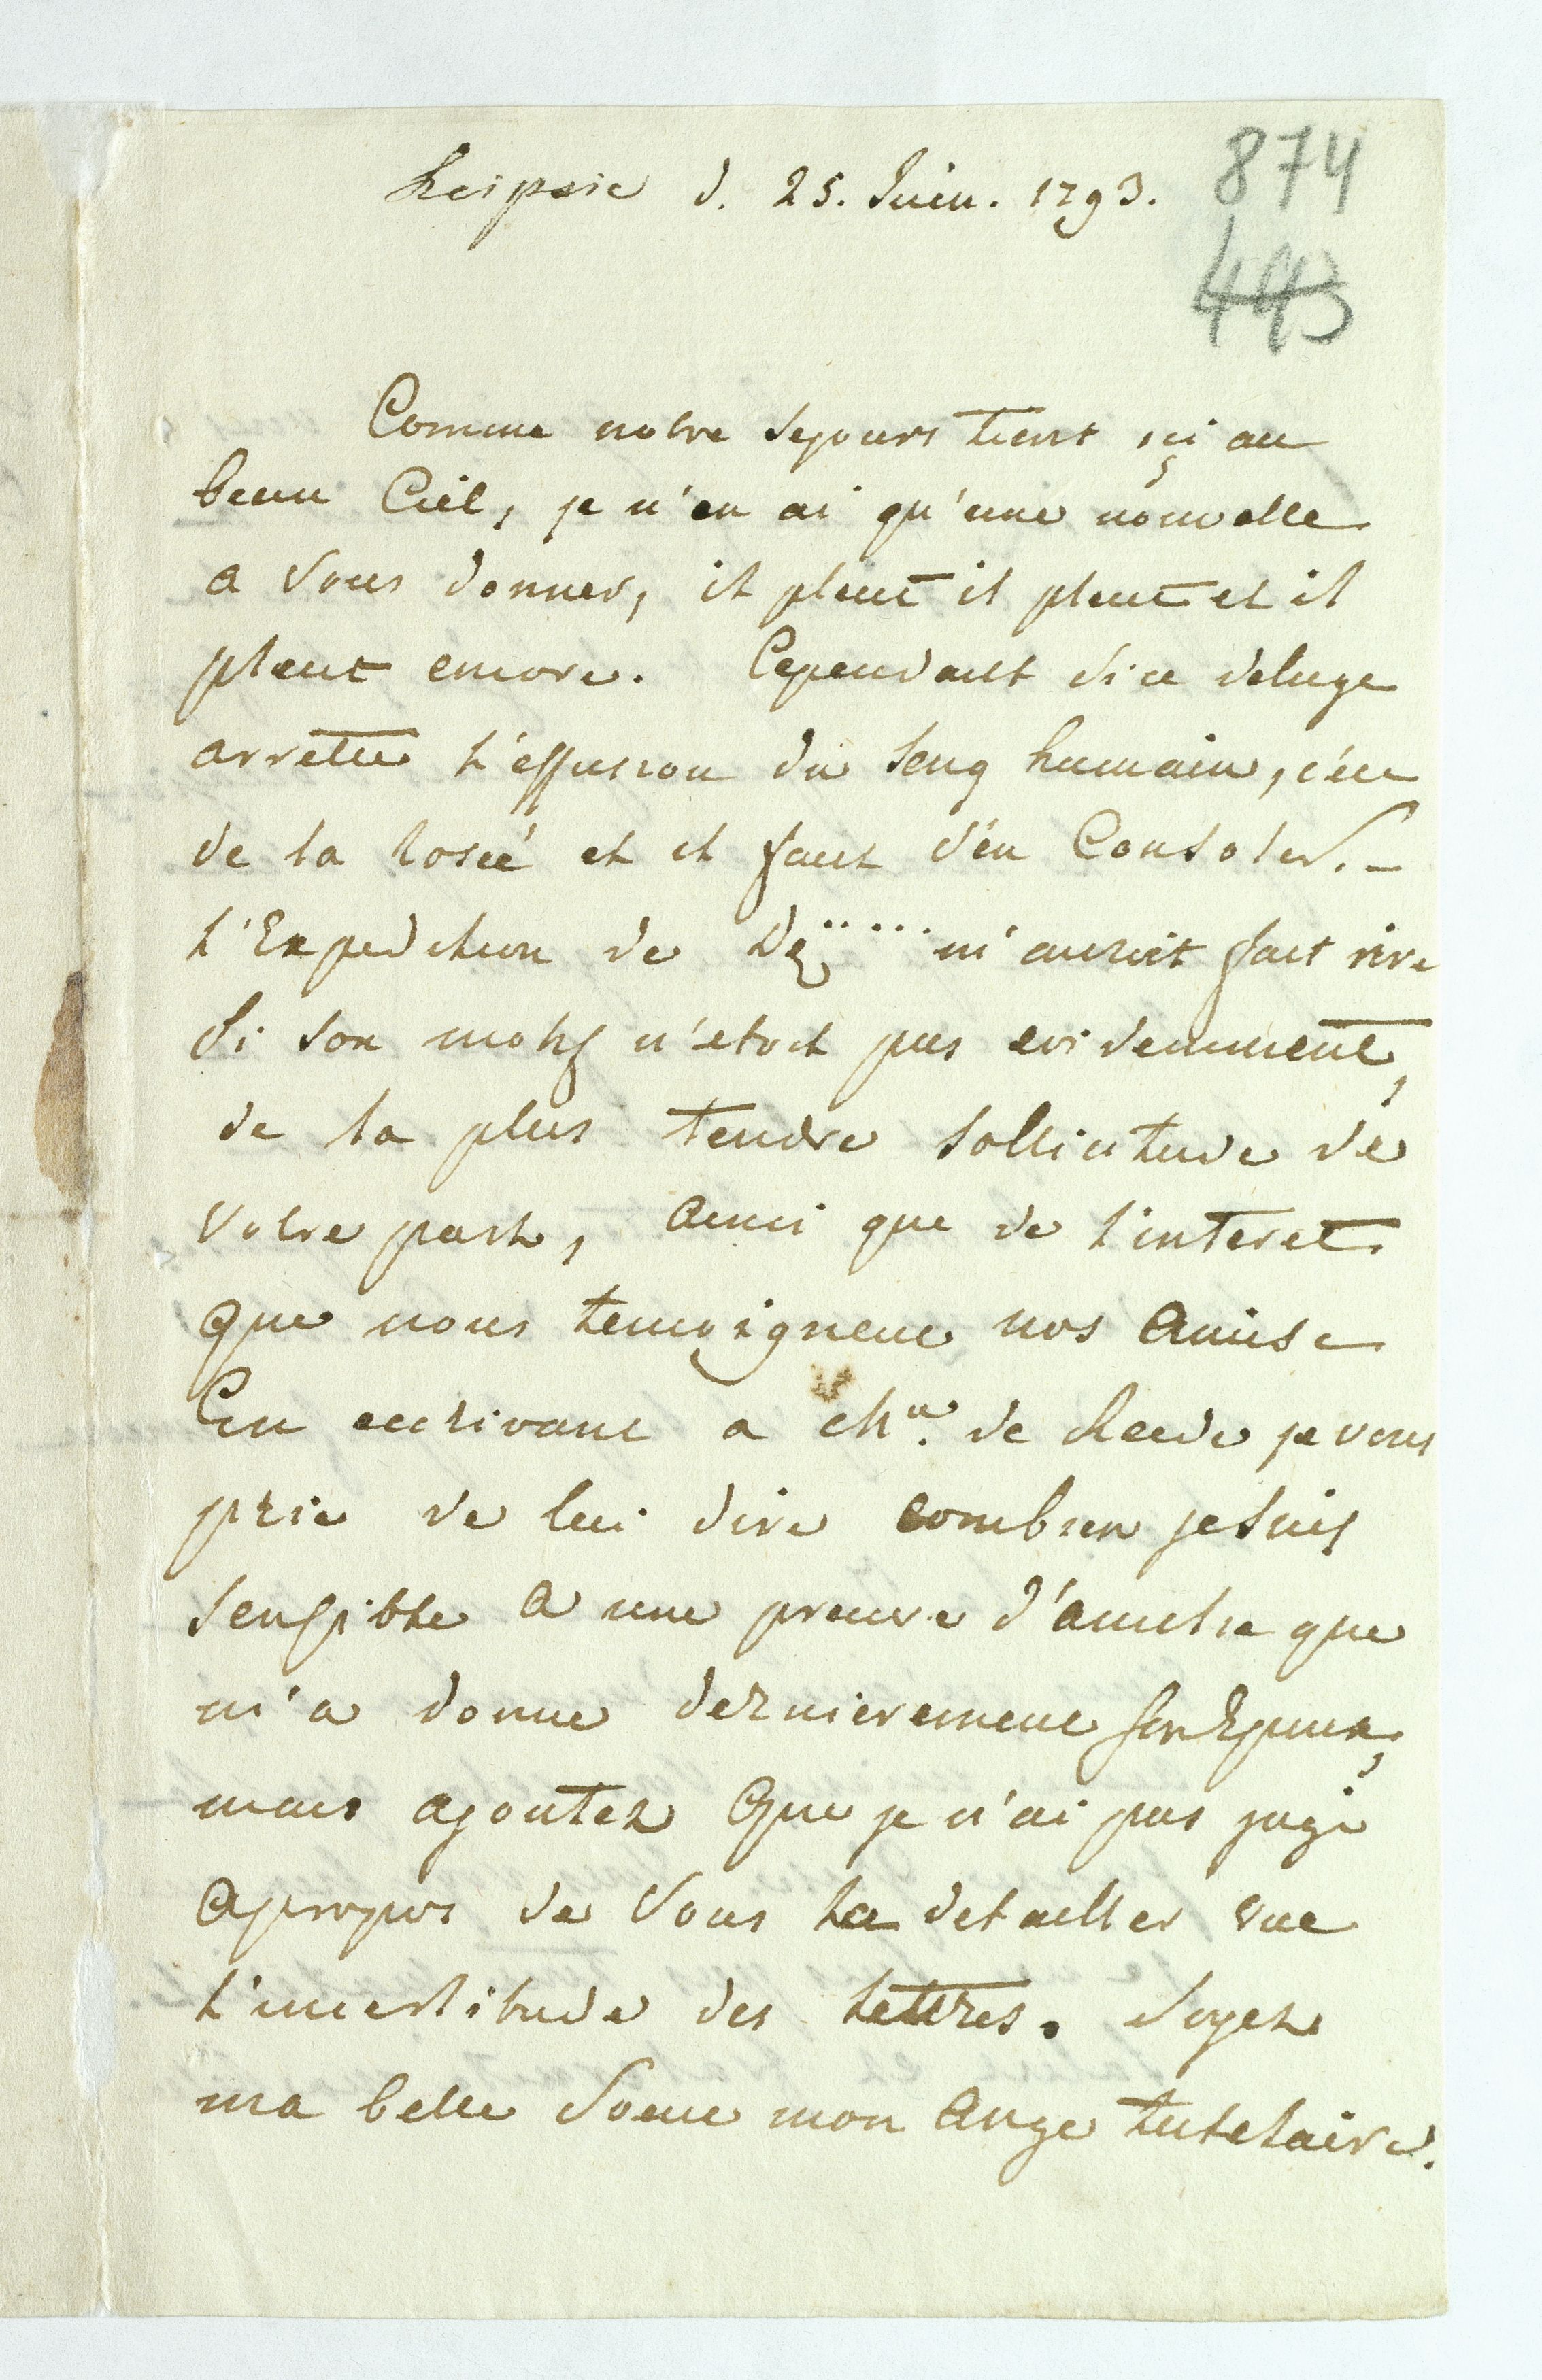 Leipsic d. 25. Juin. 1793.
874
443
Comme notre sejours tient ici au
beau Ciel, je n'en ai qu'une nouvelle
a Vous donner, il pleut il pleut et il
pleut encore. Cependant si ce deluge
arrette l'effusion du sang humain, c'est
de la rosée et il faut s'en Consoler. -
l'Expedition de m'auroit fait rire
si son motif n'etoit pas evidemment,
de la plus tendre sollicitude de
Votre part, ainsi que de l'interet
que nous temoignent nos Amis.
En ecrivant a de Reede je vous
prie de lui dire combien je suis
sensible a une preuve d'amitie que
m'a donne dernierement son Epoux,
mais ajoutez que je n'ai pas jugé
apropos de Vous la detailler vue
l'incertitude des lettres. Soyez
ma belle Soeur mon Ange tutelaire.